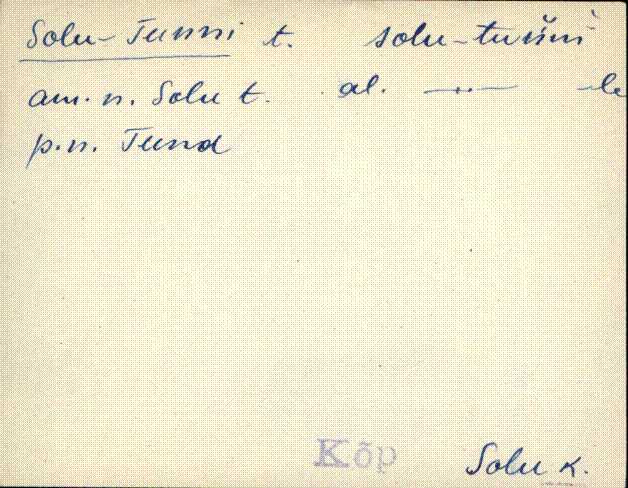 Solu-Tunni t. solu-tuńni
am. n. Solu t. al. —"— -le
p.n. Tund
Kõp
Solu k.